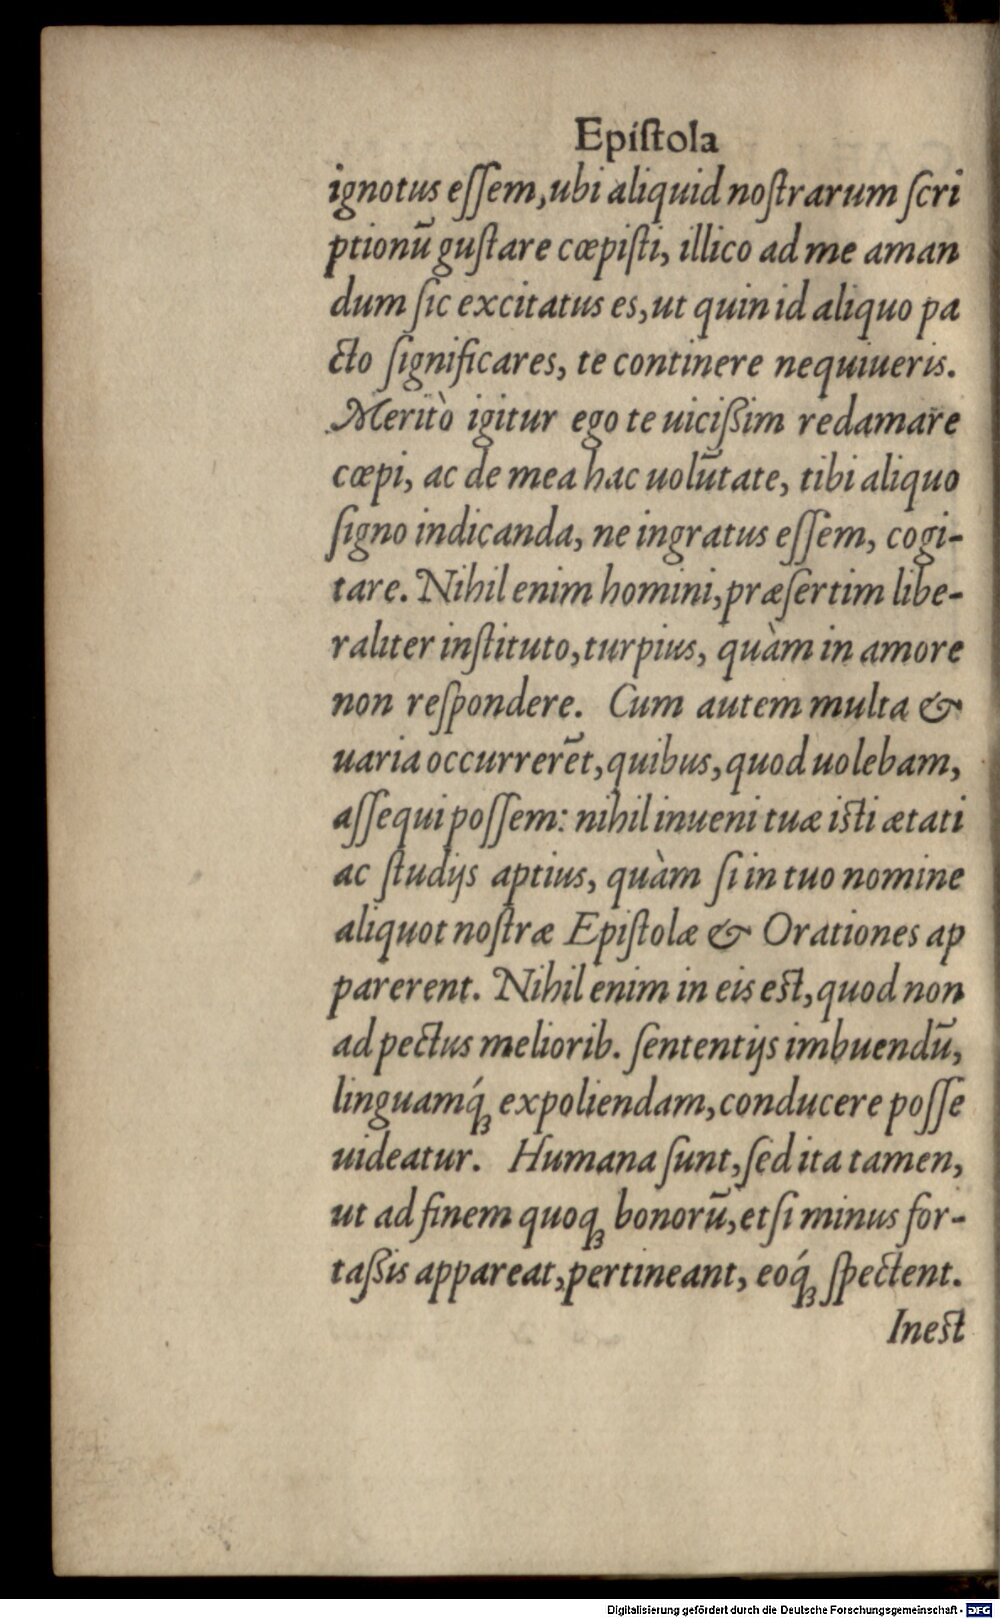 Epiſtola
ignotus eſſem, ubi aliquid noſtrarum ſcri
ptionū guſtare cœpiſti, illico ad me aman
dum ſic excitatus es, ut quin id aliquo pa
cto ſignificares, te continere nequiueris.
Meritò igitur ego te uiciſſim redamare
cœpi, ac de mea hac uolūtate, tibi aliquo
ſigno indicanda, ne ingratus eſſem, cogi-
tare. Nihil enim homini, præſertim libe-
raliter inſtituto, turpius, quàm in amore
non reſpondere. Cum autem multa &
uaria occurrerēt, quibus, quod uolebam,
aſſequi poſſem: nihil inueni tuæ iſti ætati
ac ſtudijs aptius, quàm ſi in tuo nomine
aliquot noſtræ Epiſtolæ & Orationes ap
parerent. Nihil enim in eis eſt, quod non
ad pectus meliorib. ſententijs imbuendū,
linguamq́ꝫ expoliendam, conducere poſſe
uideatur. Humana ſunt, ſed ita tamen,
ut ad finem quoqꝫ bonorū, etſi minus for-
taſſis appareat, pertineant, eoq́ꝫ ſpectent.
Ineſt
Digitalisierung gefördert durch die Deutsche Forschungsgemeinschaft - DFG